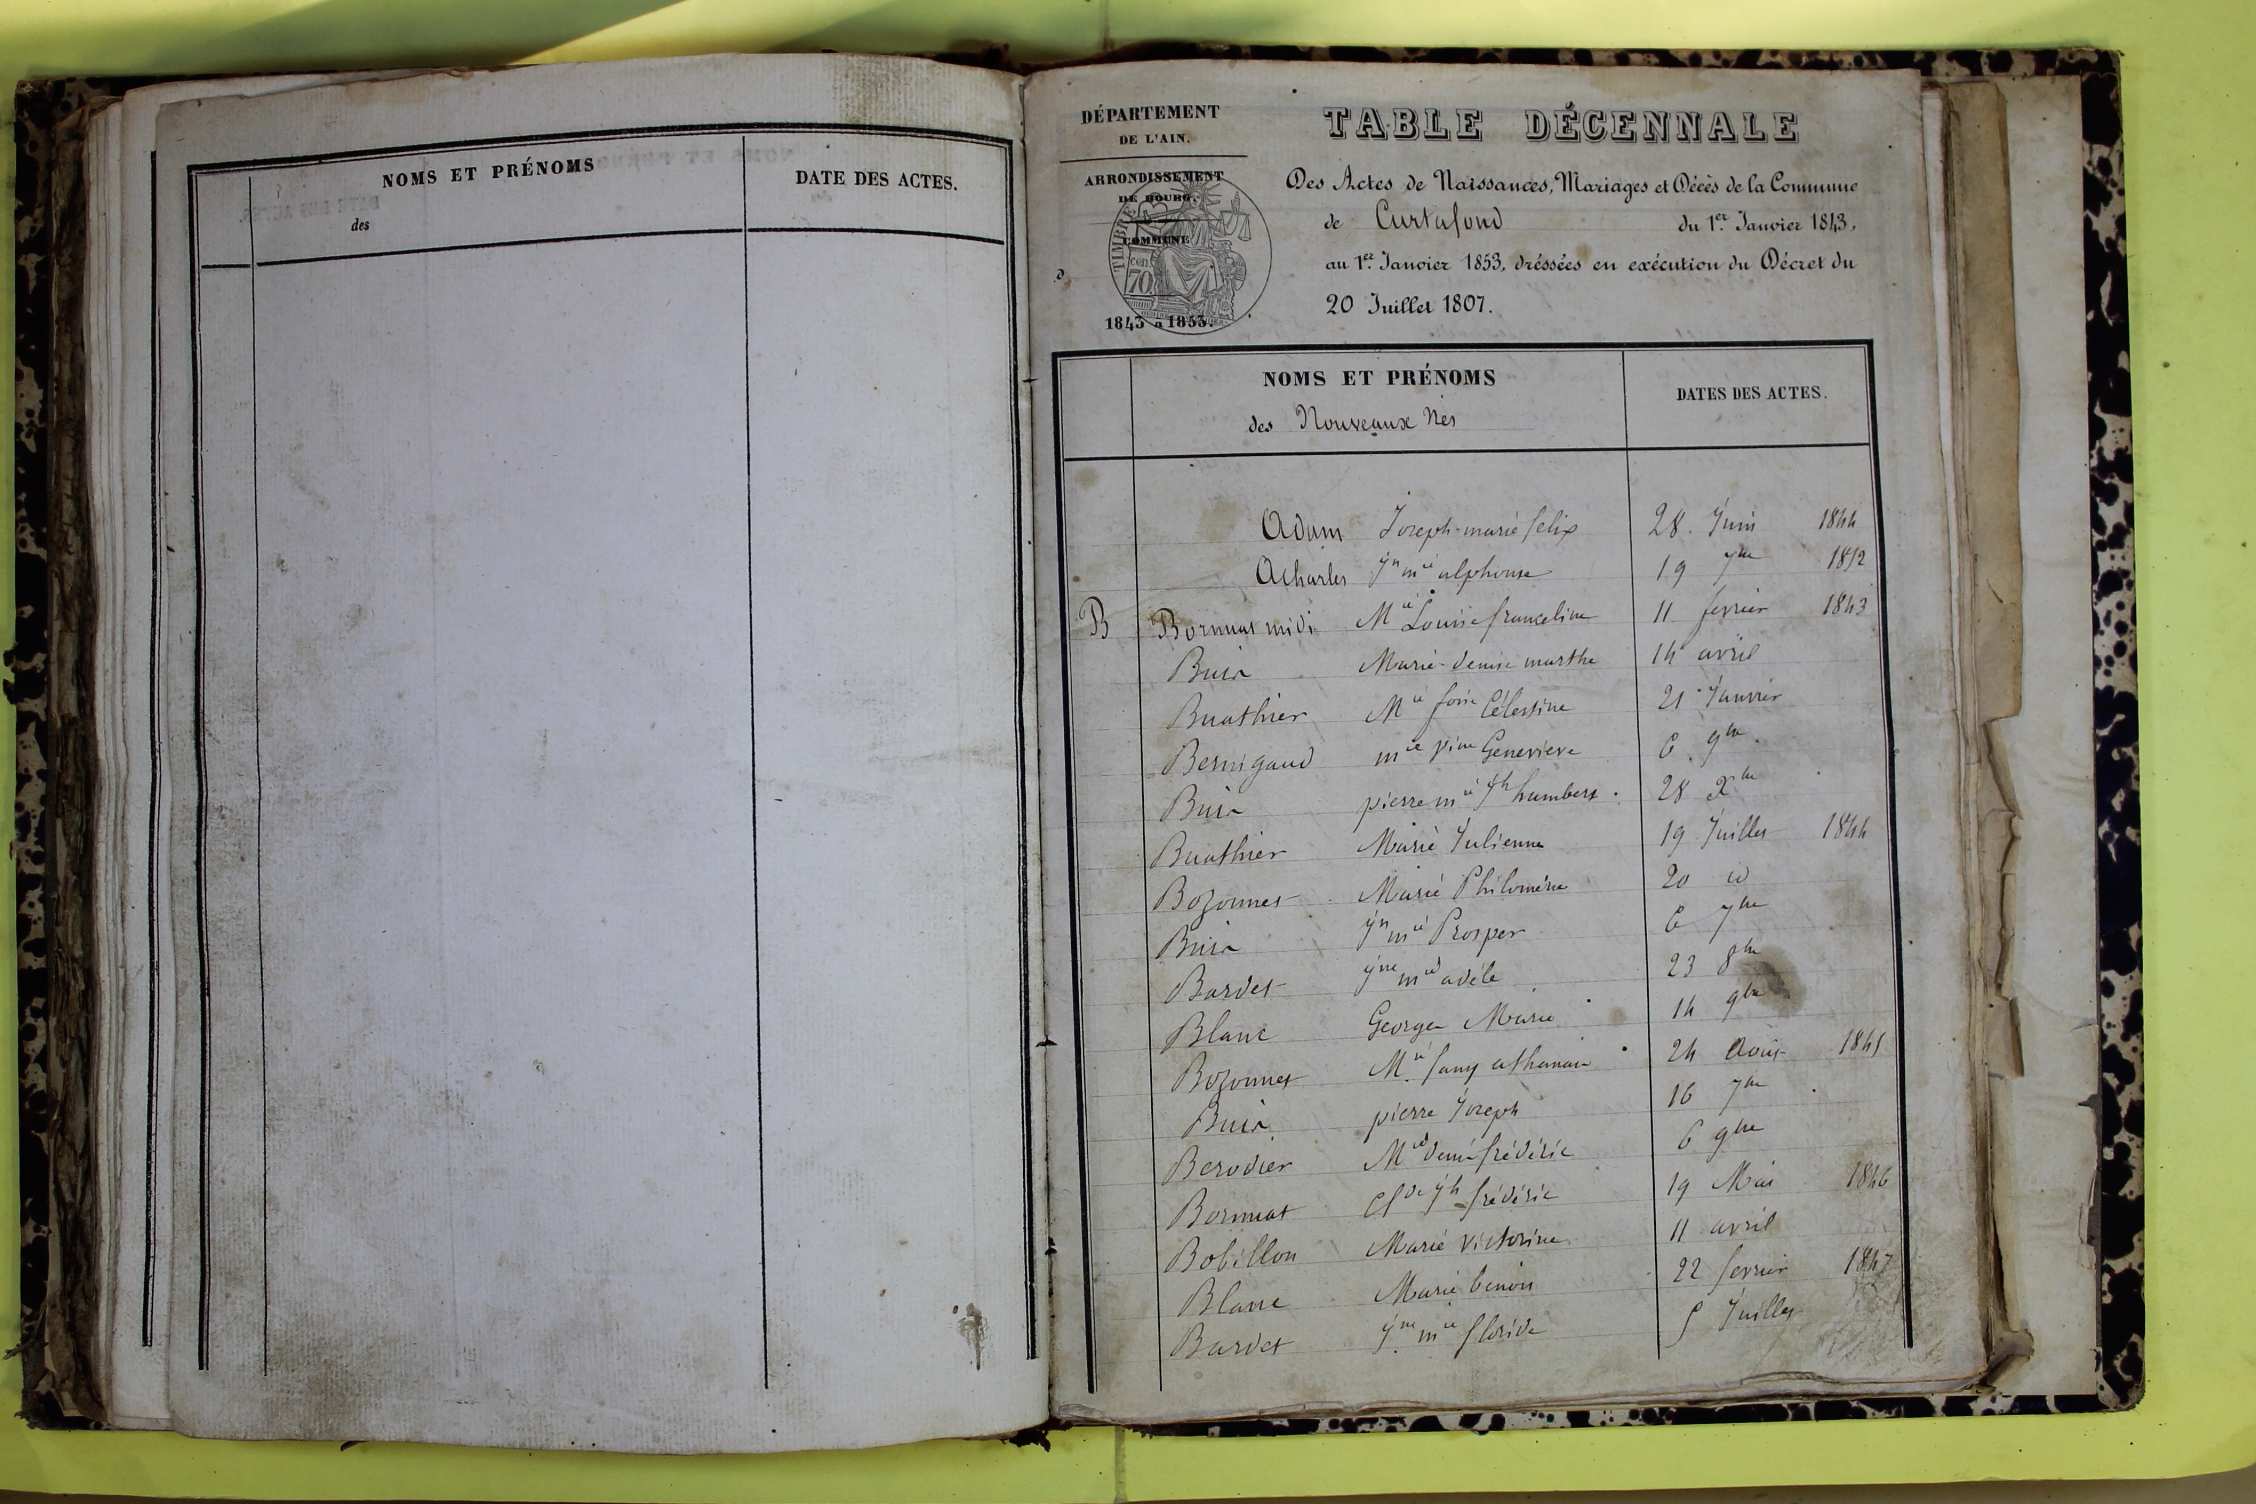 NOMS ET PRÉNOMS
des
DATE DES ACTES.
DÉPARTEMENT
DE L'AIN.
ARRONDISSEMENT
DE BOURG.
COMMUNE
TIMBRE
cen
70
1843 à 1853.
TABLE DÉCENNALE
Des Actes de Naissances, Mariages et Décès de la Commune
de Curtafond du 1er. Janvier 1843,
au 1er. Janvier 1853, dréssées en exécution du Décret du
20 Juillet 1807.
NOMS ET PRÉNOMS
des Nouveaux Nés
DATES DES ACTES.
Adam Joseph-marie felix 28. Juin 1844
Acharles Jn mie alphonse 19 7bre 1852
B Bornuat midi Mie Louise franceline 11 fevrier 1843
Buir Marie-denise marthe 14 avril
Buathier Mie foise Célestine 21 Janvier
Bernigaud mie Genevieve 6 9bre
Buir pierre mie Jh humbert 28 Xbre
Buathier Marie Julienne 19 Juillet 1844
Bozonnet Marie Philomène 20 id
Buir Jn mie Prosper 6 7bre
Bardet Jne mie adèle 23 8bre
Blanc George Marie 14 9bre
Bozonnet Mie fany athanaise 24 Août 1845
Buir pierre Joseph 16 7bre
Berodier frédéric 6 9bre
Bornuat Clde Jh frédéric 19 Mai 1846
Bobillon Marie victorine 11 avril
Blanc Marie benoit 22 fevrier 1847
Bardet Jne mie floride 5 Juillet